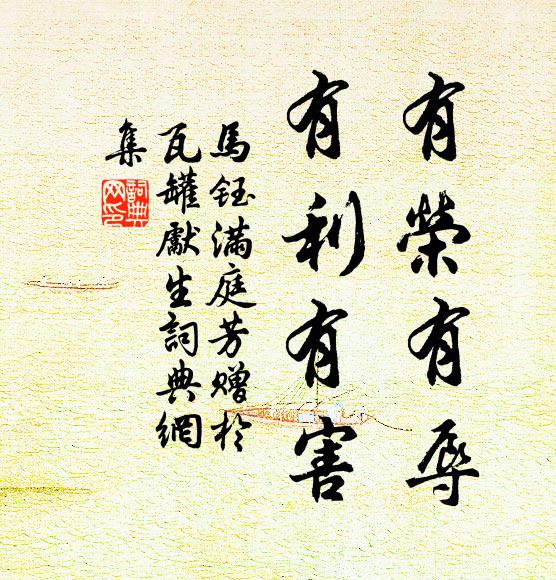 有榮有辱
有利有害
馬鈺滿庭芳贈於
瓦罐獻生詞典網
集
詞典
网印